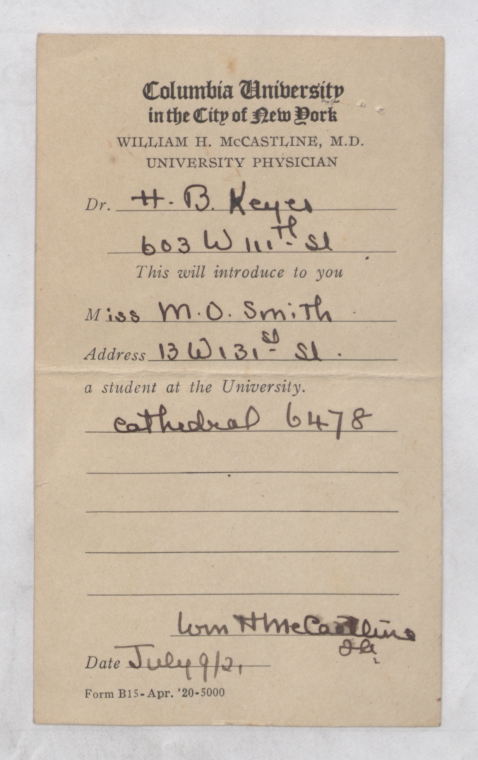 Columbia University
in the City of New York
WILLIAM H. McCASTLINE, M.D.
UNIVERSITY PHYSICIAN
Dr. H. B. Keyes
603 W 111th St
This will introduce to you
Miss M. O. Smith
Address 13 W 131st St.
a student at the University.
Cathedral 6478
Wm H McCastline
Date July 9/21
Form B15-Apr. '20-5000